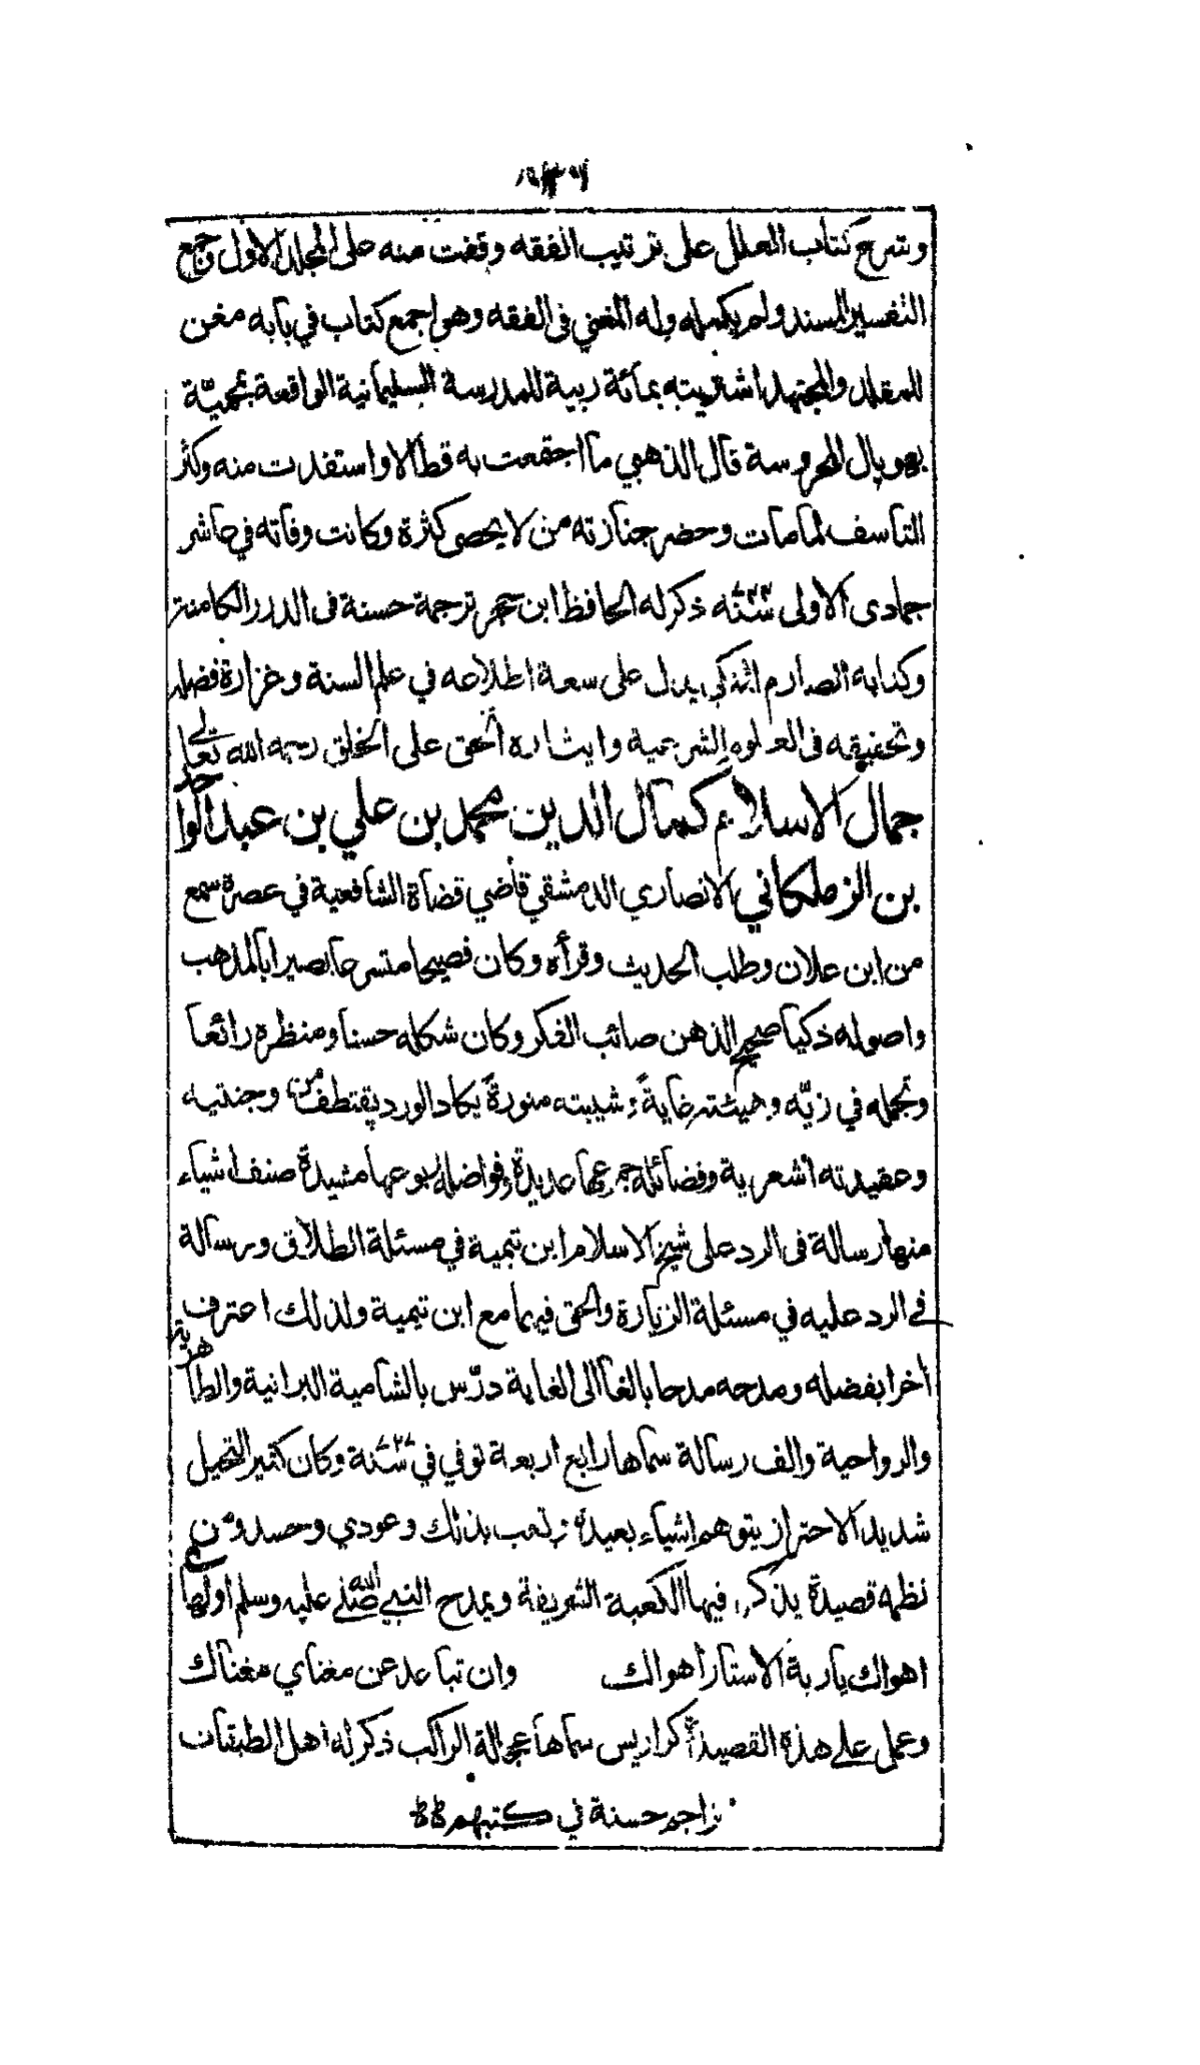 وشرح كتاب العلل على ترتيب الفقه وقفت منه على المجلد الاول وجمع
التفسير المسند ولم يكمله وله المغني فى الفقه وهو اجمع كتاب في بابه مغن
للمقلد والمجتهد اشتريته بمائة ربية للمدرسة السليمانية الواقعة بمحميّة
بهوپال المحروسة قال الذهبي ما اجتمعت به قط الا واستفدت منه وكثر
التاسف لما مات وحضر جنازته من لا يحصى كثرة وكانت وفاته في عاشر
جمادى الاولى سنة ذكر له الحافظ ابن حجر ترجمة حسنة فى الدرر الكامنة
وكتابه الصارم المنكي يدل على سعة اطلاعه في علم السنة وغزارة فضله
وتحقيقه فى العلوم الشرعية وايثاره الحق على الخلق رحمه الله تعالى
جمال الاسلام كمال الدين محمد بن علي بن عبد الواحد
بن الزملكاني الانصاري الدمشقي قاضي قضاة الشافعية في عصره سمع
من ابن علان وطلب الحديث وقرأه وكان فصيحا متسرعا بصيرا بالمذهب
واصوله ذكيا صحيح الذهن صائب الفكر وكان شكله حسنا ومنظره رائعا
وتجمله في زيّه وهيئته غاية وشيبته منورة يكاد الورد يقتطف من وجنتيه
وعقيدته اشعرية وفضائله عديدة وفواضله ربوعها مشيدة صنف اشياء
منها رسالة فى الرد على شيخ الاسلام ابن تيمية في مسئلة الطلاق ورسالة
فى الرد عليه في مسئلة الزيارة والحق فيهما مع ابن تيمية ولذلك اعترف
أخرا بفضله ومدحه مدحا بالغا الى الغاية درّس بالشامية البرانية والظاهرية
والرواحية والف رسالة سماها رابع اربعة توفي في سنة ٧٢٧ وكان كثير التخيل
شديد الاحتراز يتوهم اشياء بعيدة وتعب بذلك وعودي وحسد ومن
نظمه قصيدة يذكر فيها الكعبة الشريفة ويمدح النبي صلى الله عليه وسلم اولها
اهواك ياربة الاستار أهواك وان تباعد عن مغناي مغناك
وعمل على هذه القصيدة كراريس سماها عجالة الراكب ذكر له اهل الطبقات
تراجم حسنة في كتبهم